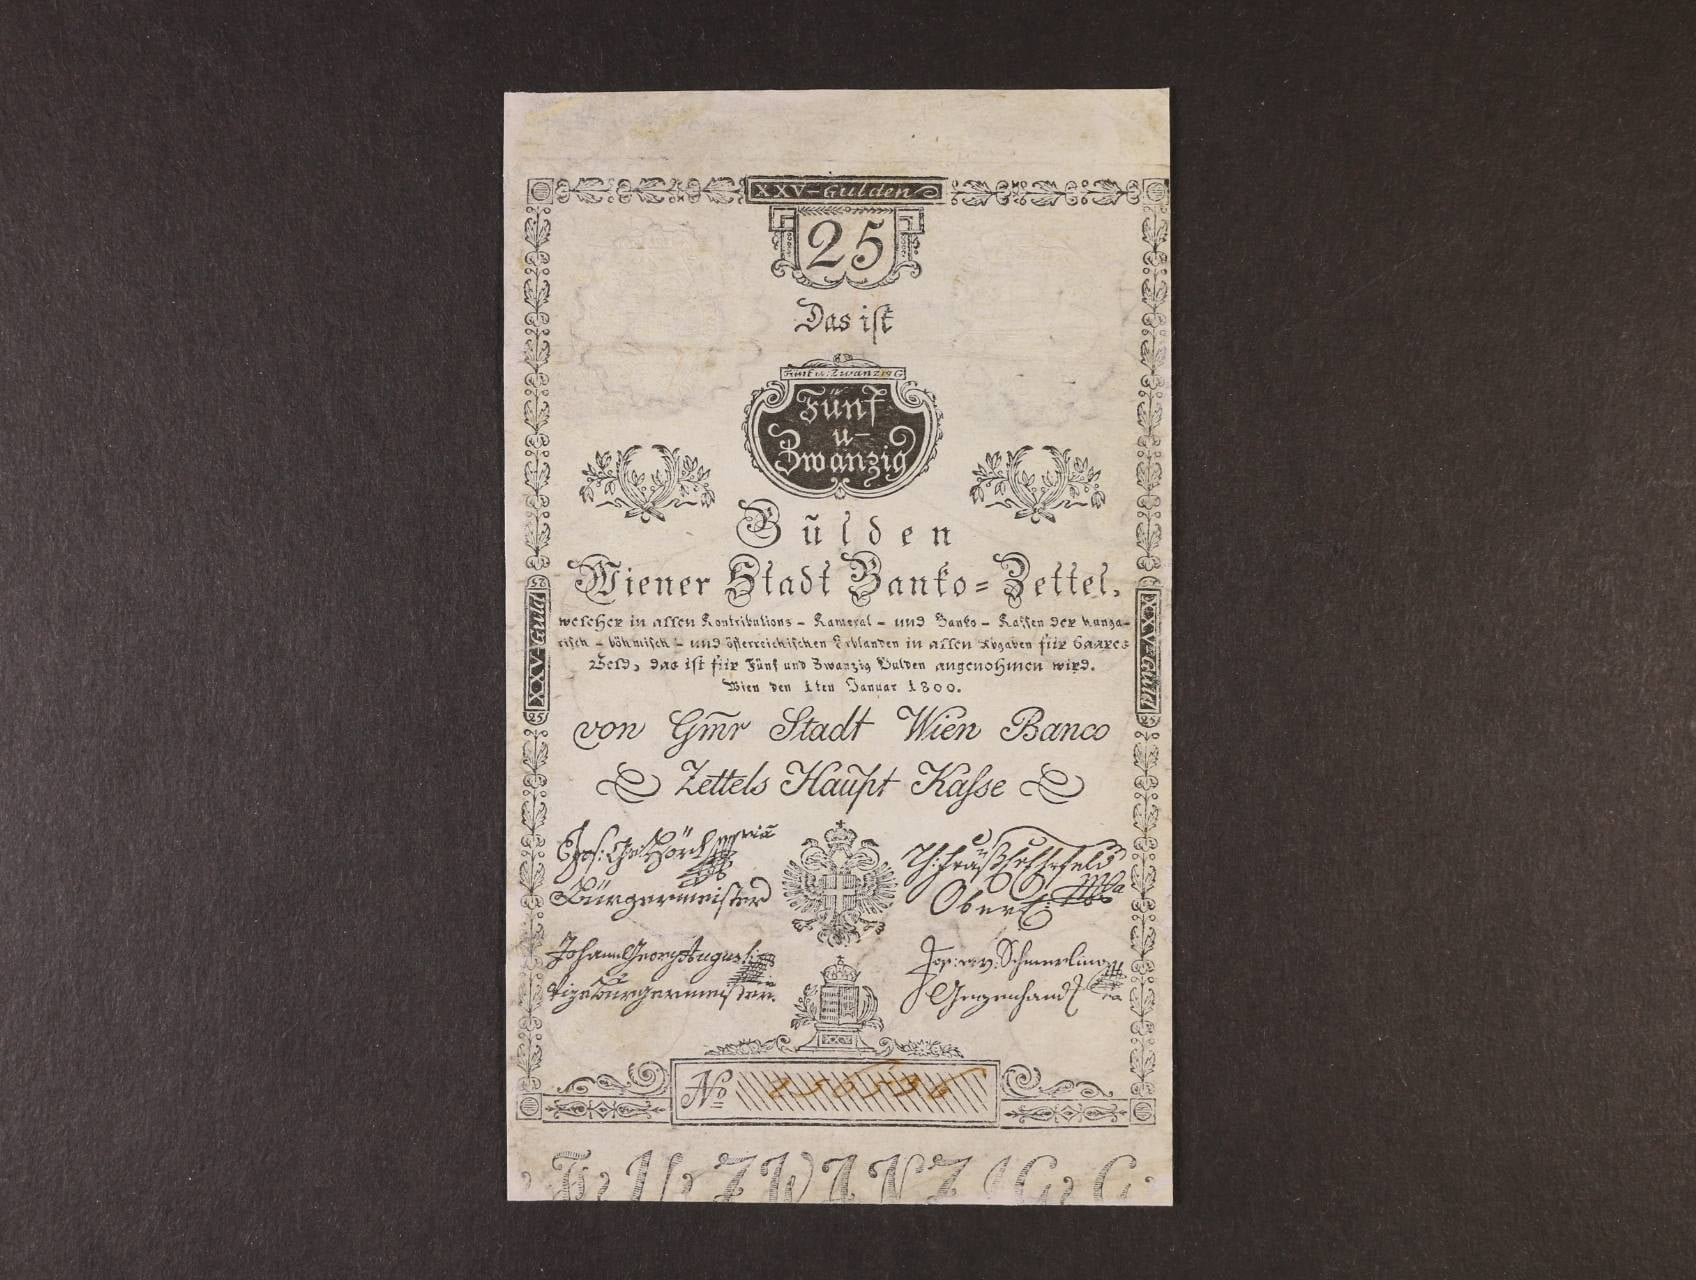 XXV-Gulden
25
Das ist
Fünf u: Zwanzig G
Fünf
u-
Zwanzig
Gulden
Wiener Stadt Banko=Zettel,
welcher in allen Kontributions - Kameral - und Banko - Kassen der hunga-
risch - böhmisch - und österreichischen Erblanden in allen Abgaben für baares
Geld, das ist für Fünf und Zwanzig Gulden angenohmen wird.
Wien den 1ten Januar 1800.
25 XXV-Guld 25
XXV-Guld 25
von Gm̃r Stadt Wien Banco
Zettels Haupt Kasse
Jos: Geo: Hörl
Bürgermeister
Ober
Johann Georg Augusti
Vizebürgermeister.
Jos: v: Schmerling
Gegenhand
XXV
No 256536
F. U. ZWANZIG. G.